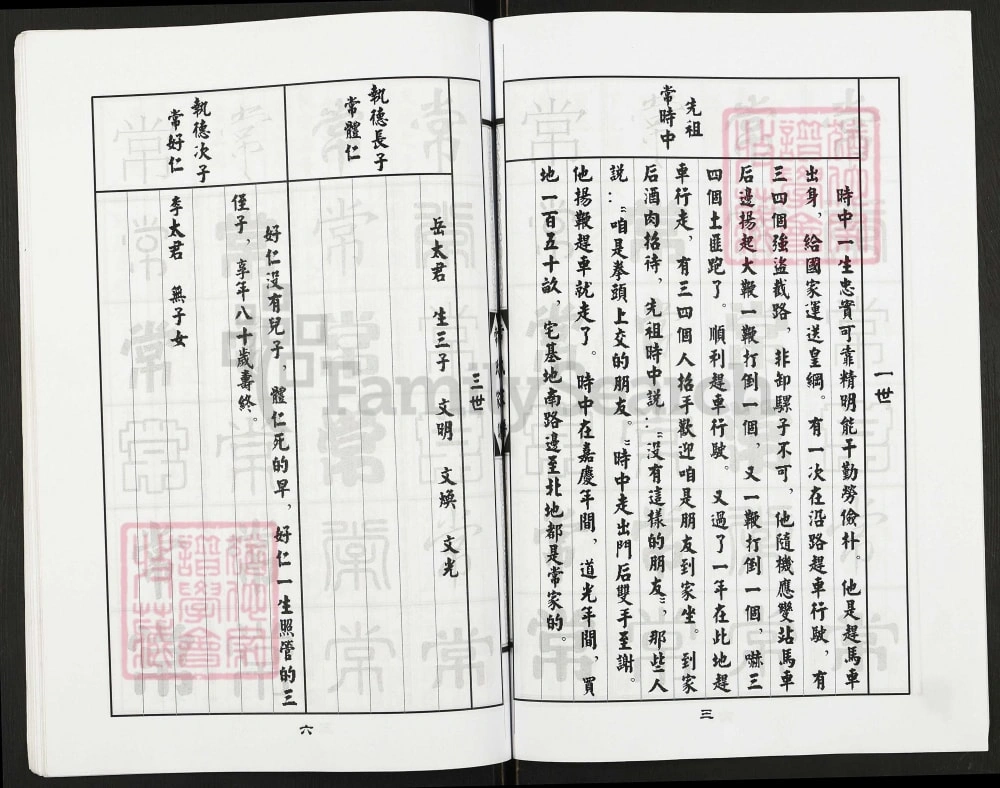 一世
先祖
常時中
時中一生忠實可靠精明能干勤勞儉朴。他是趕馬車
出身，給國家運送皇綱。有一次在沿路趕車行駛，有
三四個強盜截路，非卸騾子不可，他隨機應變站馬車
后邊揚起大鞭一鞭打倒一個，又一鞭打倒一個，嚇三
四個土匪跑了。順利趕車行駛。又過了一年在此地趕
車行走，有三四個人招手歡迎咱是朋友到家坐。到家
后酒肉招待，先祖時中説：“没有這樣的朋友”，那些人
説：“咱是拳頭上交的朋友。”時中走出門后雙手至謝。
他揚鞭趕車就走了。時中在嘉慶年間，道光年間，買
地一百五十畝，宅基地南路邊至北地都是常家的。
三
三世
執德長子
常體仁
岳太君 生三子 文明 文焕 文光
執德次子
常好仁
好仁没有兒子，體仁死的早，好仁一生照管的三
侄子，享年八十歲壽終。
李太君 無子女
六
FamilySearch